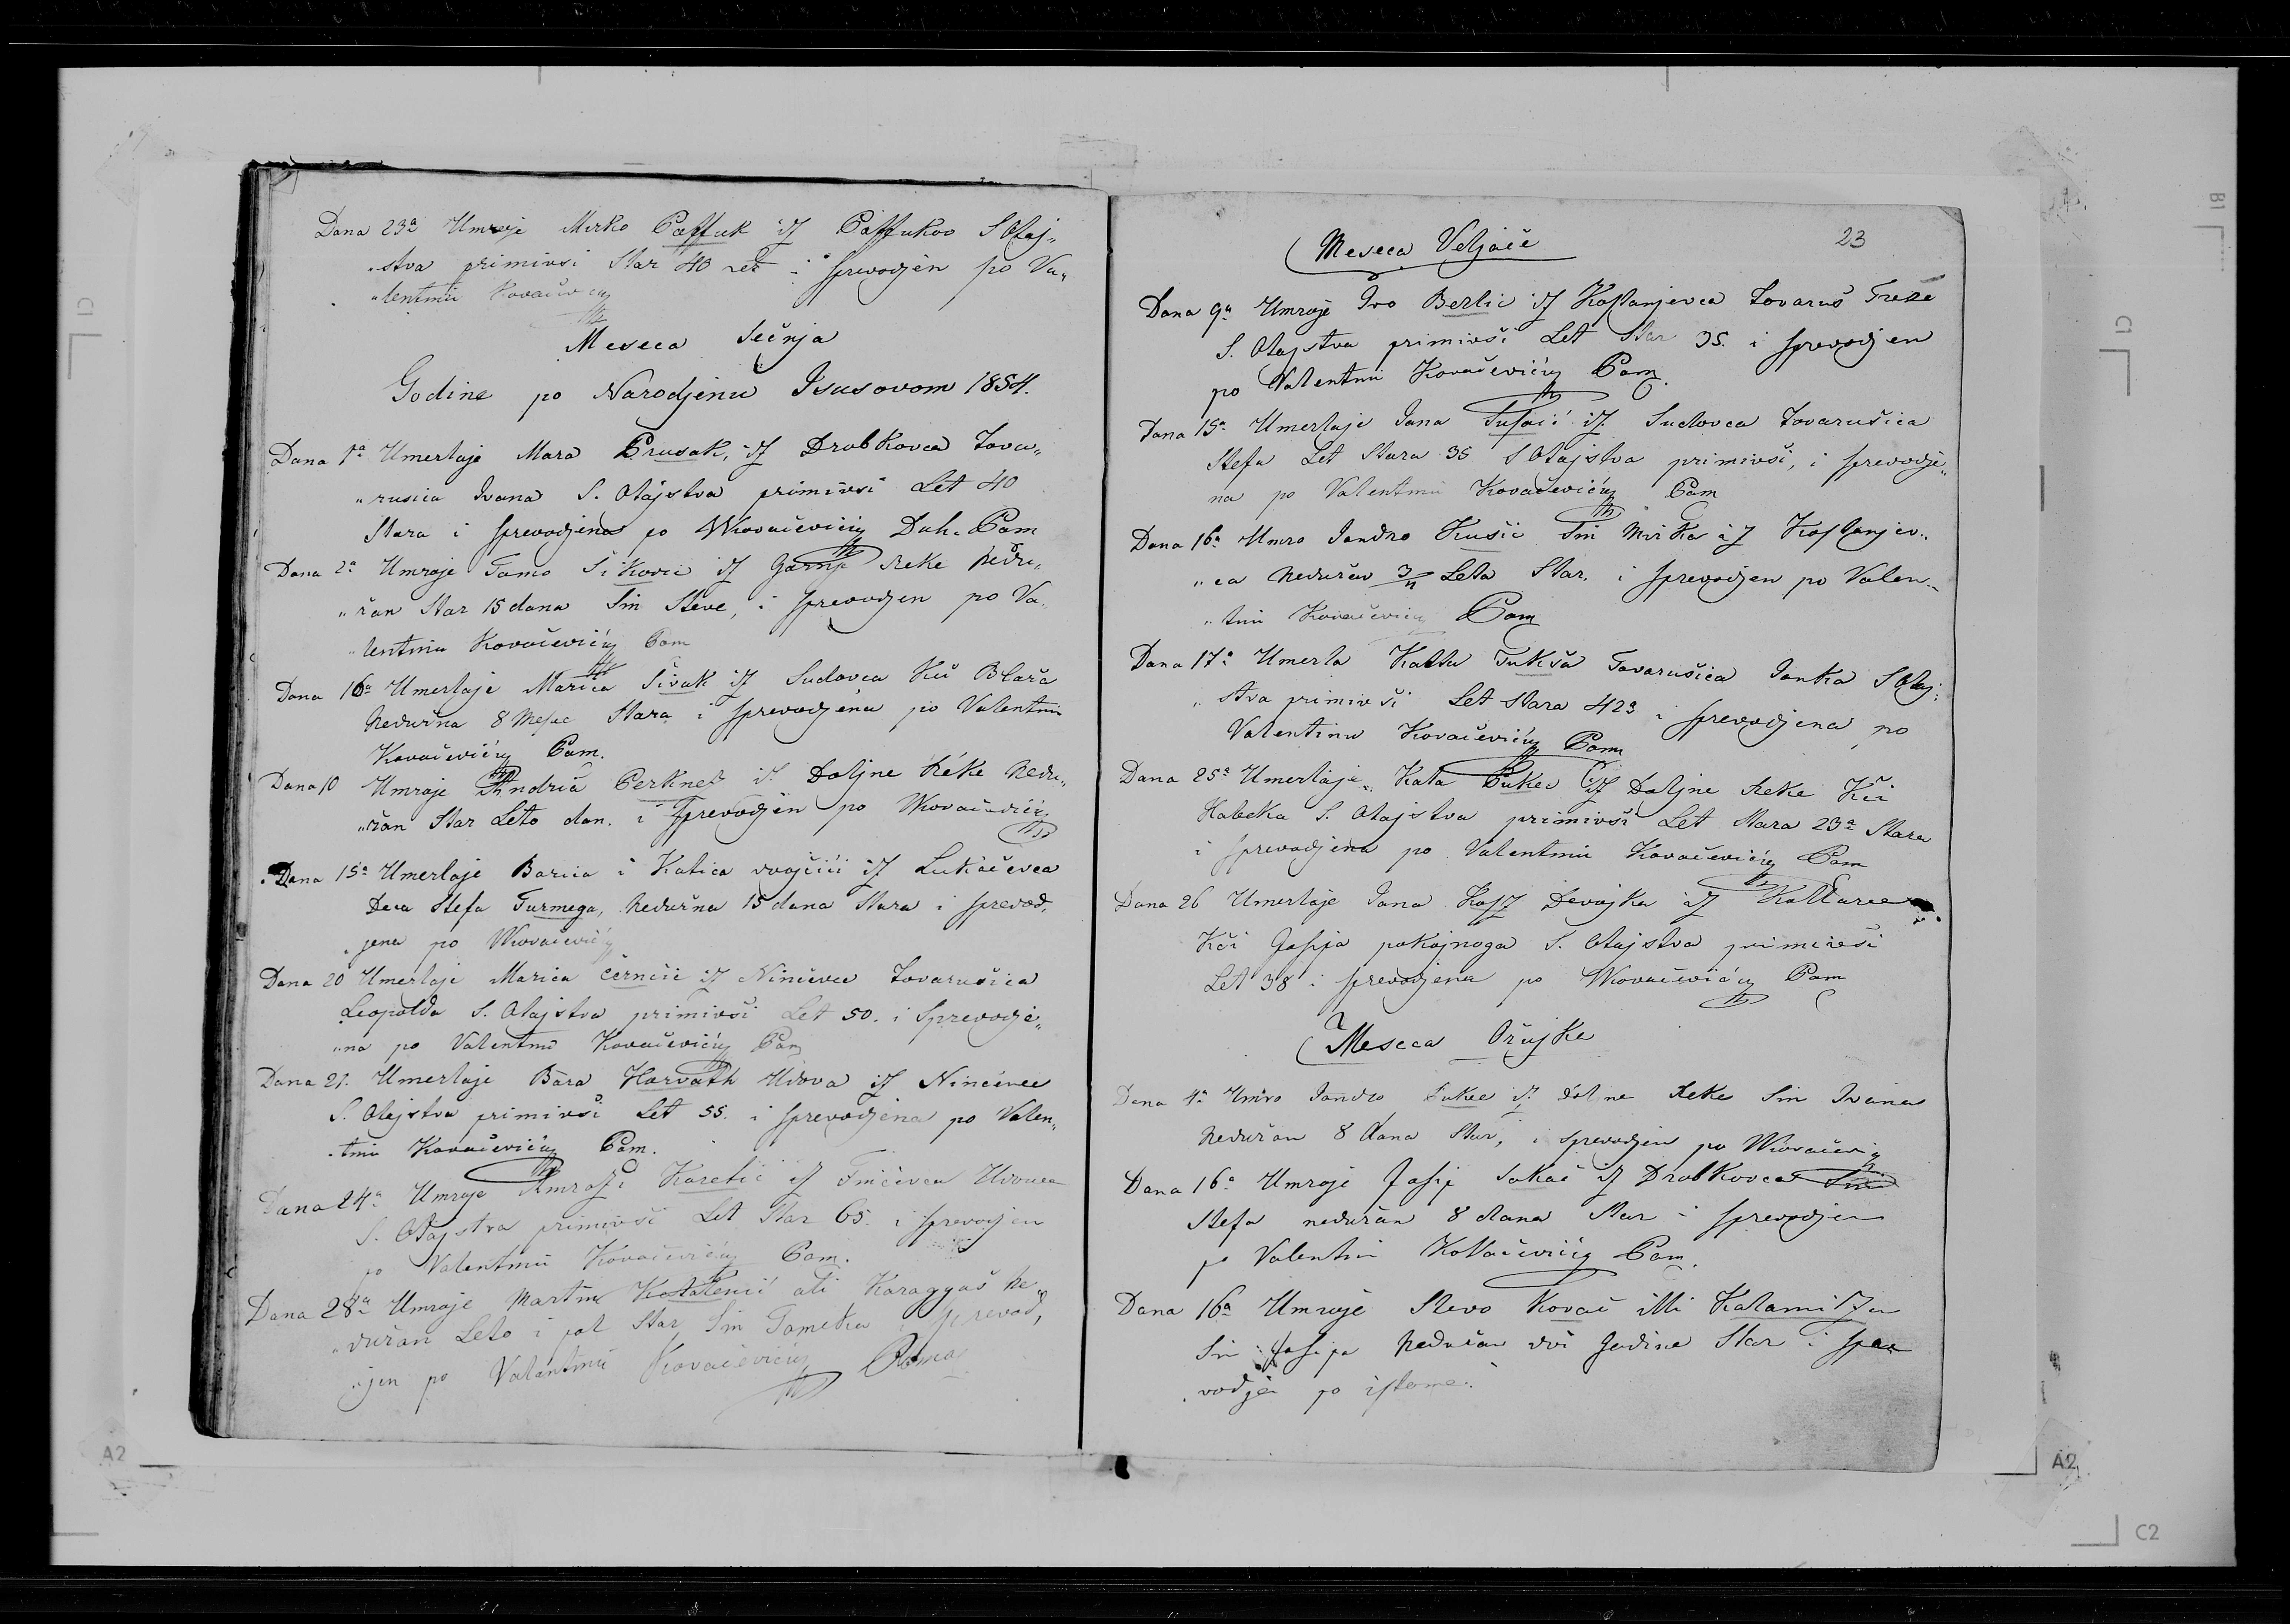 Dana 23a Umroje Mirko Paffuk iz Paffukov S Otaj„
„stva primivsi Star 40 let i sprevodjen po Va„
„lentinu Kovačevicu
Meseca Sečnja
Godine po Narodjenu Isusovom 1854.
Dana 1a Umerlaje Mara Prusak, iz Drobkovca Tova„
„rusica Ivana S. Otajstva primivsi Let 40
Stara i sprevodjena po VKovačevićy Duh. Pom
Dana 2a Umroje Tomo Sikovic iz Gornje Reke Nedu„
„žan Star 15 dana Sin Steve, i sprevodjen po Va„
„lentinu Kovačevićy Pom
Dana 16a Umerlaje Marica Sivak iz Sudovca Kći Blaža
Nedužna 8 Mesec Stara i sprevodjena po Valentinu
Kovačevićy Pom.
Dana 10 Umroje Andria Perknet iz Doljne Réke Nedu„
„žan Star Leto dan. i sprevodjen po VKovačevićy
Dana 15a Umerlaje Barica i Katica dvojčići iz Lukačevca
Deca Stefa Turmega, Nedužna 15 dana Stara i sprevod„
„jena po VKovačevićy
Dana 20 Umerlaje Marica Černčic iz Ninčevca Tovarušica
Leopolda S. Otajstva primivši Let 50. i Sprevodje„
„na po Valentinu Kovačevićy Pom
Dana 21. Umerlaje Bara Horvath Udova iz Ninčevec
S. Otajstva primivši Let 55. i sprevodjena po Valen„
„tinu Kovačevićy Pom.
Dana 24a Umroje Ambrozi Karetić iz Tinčevca Udovec
S. Otajstva primivši Let Star 65. i sprevodjen
po Valentinu Kovačevićy Pom.
Dana 28a Umroje Martin ali Karagyaš Ne„
„dužan Leto i pol Star Sin Tomeka i sprevod„
„jen po Valentinu Kovačevićy Pom
23
Meseca Veljače
Dana 9a Umroje Ivo Berlic iz Kostanjevca Tovaruš Treze
S. Otajstva primivši Let Star 35. i sprevodjen
po Valentinu Kovačevićy Pom.
Dana 15a Umerlaje Jana iz Sudovca Tovarušica
Stefa Let Stara 35 S Otajstva primivši, i sprevodje„
na po Valentinu Kovačevićy Pom
Dana 16a Umro Jandro Kusic Sin Mirka iz Kostanjev„
„ca Nedužan 3/4 Leta Star. i sprevodjen po Valen„
„tinu Kovačevićy Pom
Dana 17a Umerla Katta Tukša Tovarušica Janka S Otaj„
„stva primivši Let Stara 42a i sprevodjena po
Valentinu Kovačevićy Pom
Dana 25a Umerlaje Kata Pukec iz Doljne Reke Kći
Habeka S. Otajstva primivši Let Stara 23a Stara
i sprevodjena po Valentinu Kovačevićy Pom
Dana 26 Umerlaje Jana Devojka iz
Kći Josipa pokojnoga S. Otajstva primivši
Let 38 i sprevodjena po VKovačevićy Pom
Meseca Ožujka
Dana 4a Umro Jandro Lukec iz Dolne Reke Sin Ivana
Nedužan 8 dana Star, i sprevodjen po VKovačevicy
Dana 16a Umroje Josip Sokač iz Drobkovca Sin
Stefa nedužan 8 dana Star i sprevodjen
po Valentinu Kovačevićy Pom.
Dana 16a Umroje Stevo Kovač illi
Sin Josipa Nedužan dvi godine Star i spre
„vodjen po istome.
C1
A2
B1
C1
A2
C2